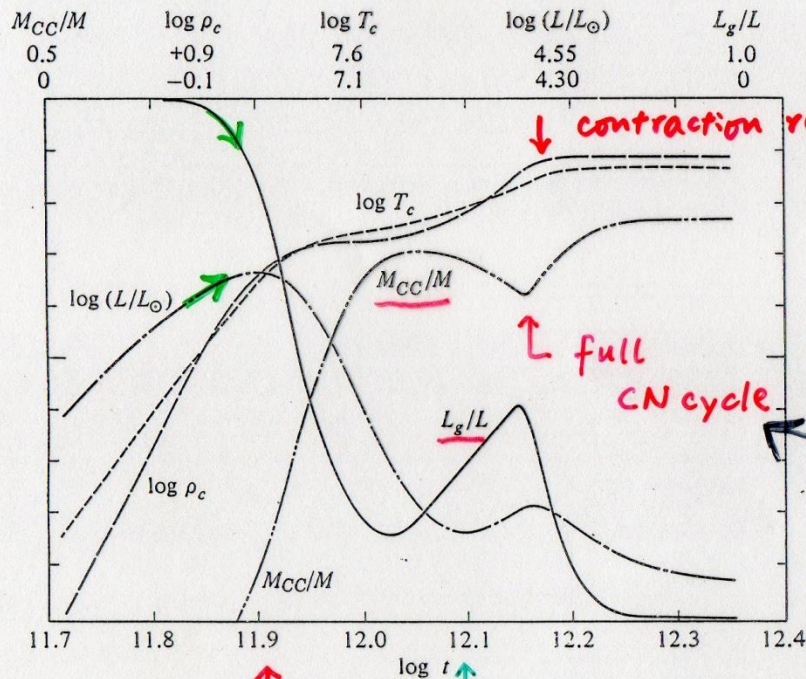 M_CC/M log ρ_c log T_c log (L/L_⊙) L_g/L
0.5 +0.9 7.6 4.55 1.0
0 −0.1 7.1 4.30 0
contraction
log T_c
log (L/L_⊙)
M_CC/M
full
CN cycle
L_g/L
log ρ_c
M_CC/M
11.7 11.8 11.9 12.0 12.1 12.2 12.3 12.4
log t